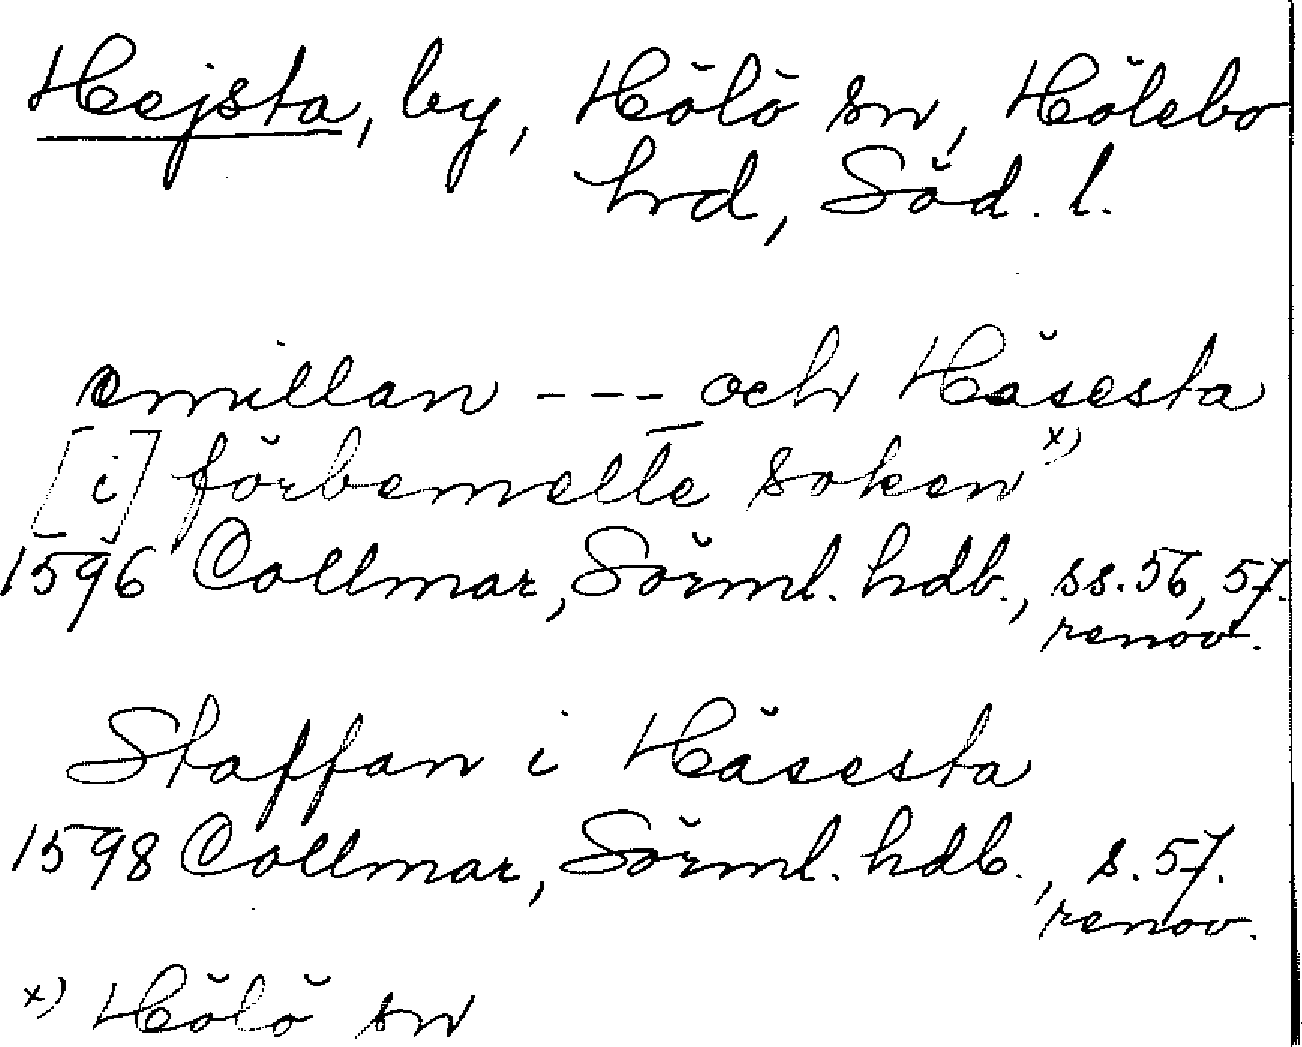 Hejsta, by, Hölö sn, Hölebo
hrd, Söd. l.
emillan --- och Häsesta
[i] förbemelte soken x)
1596 Collmar, Sörml. hdb., ss. 56, 57.
renov.
Staffan i Häsesta
1598 Collmar, Sörml. hdb., s. 57.
renov.
x) Hölö sn